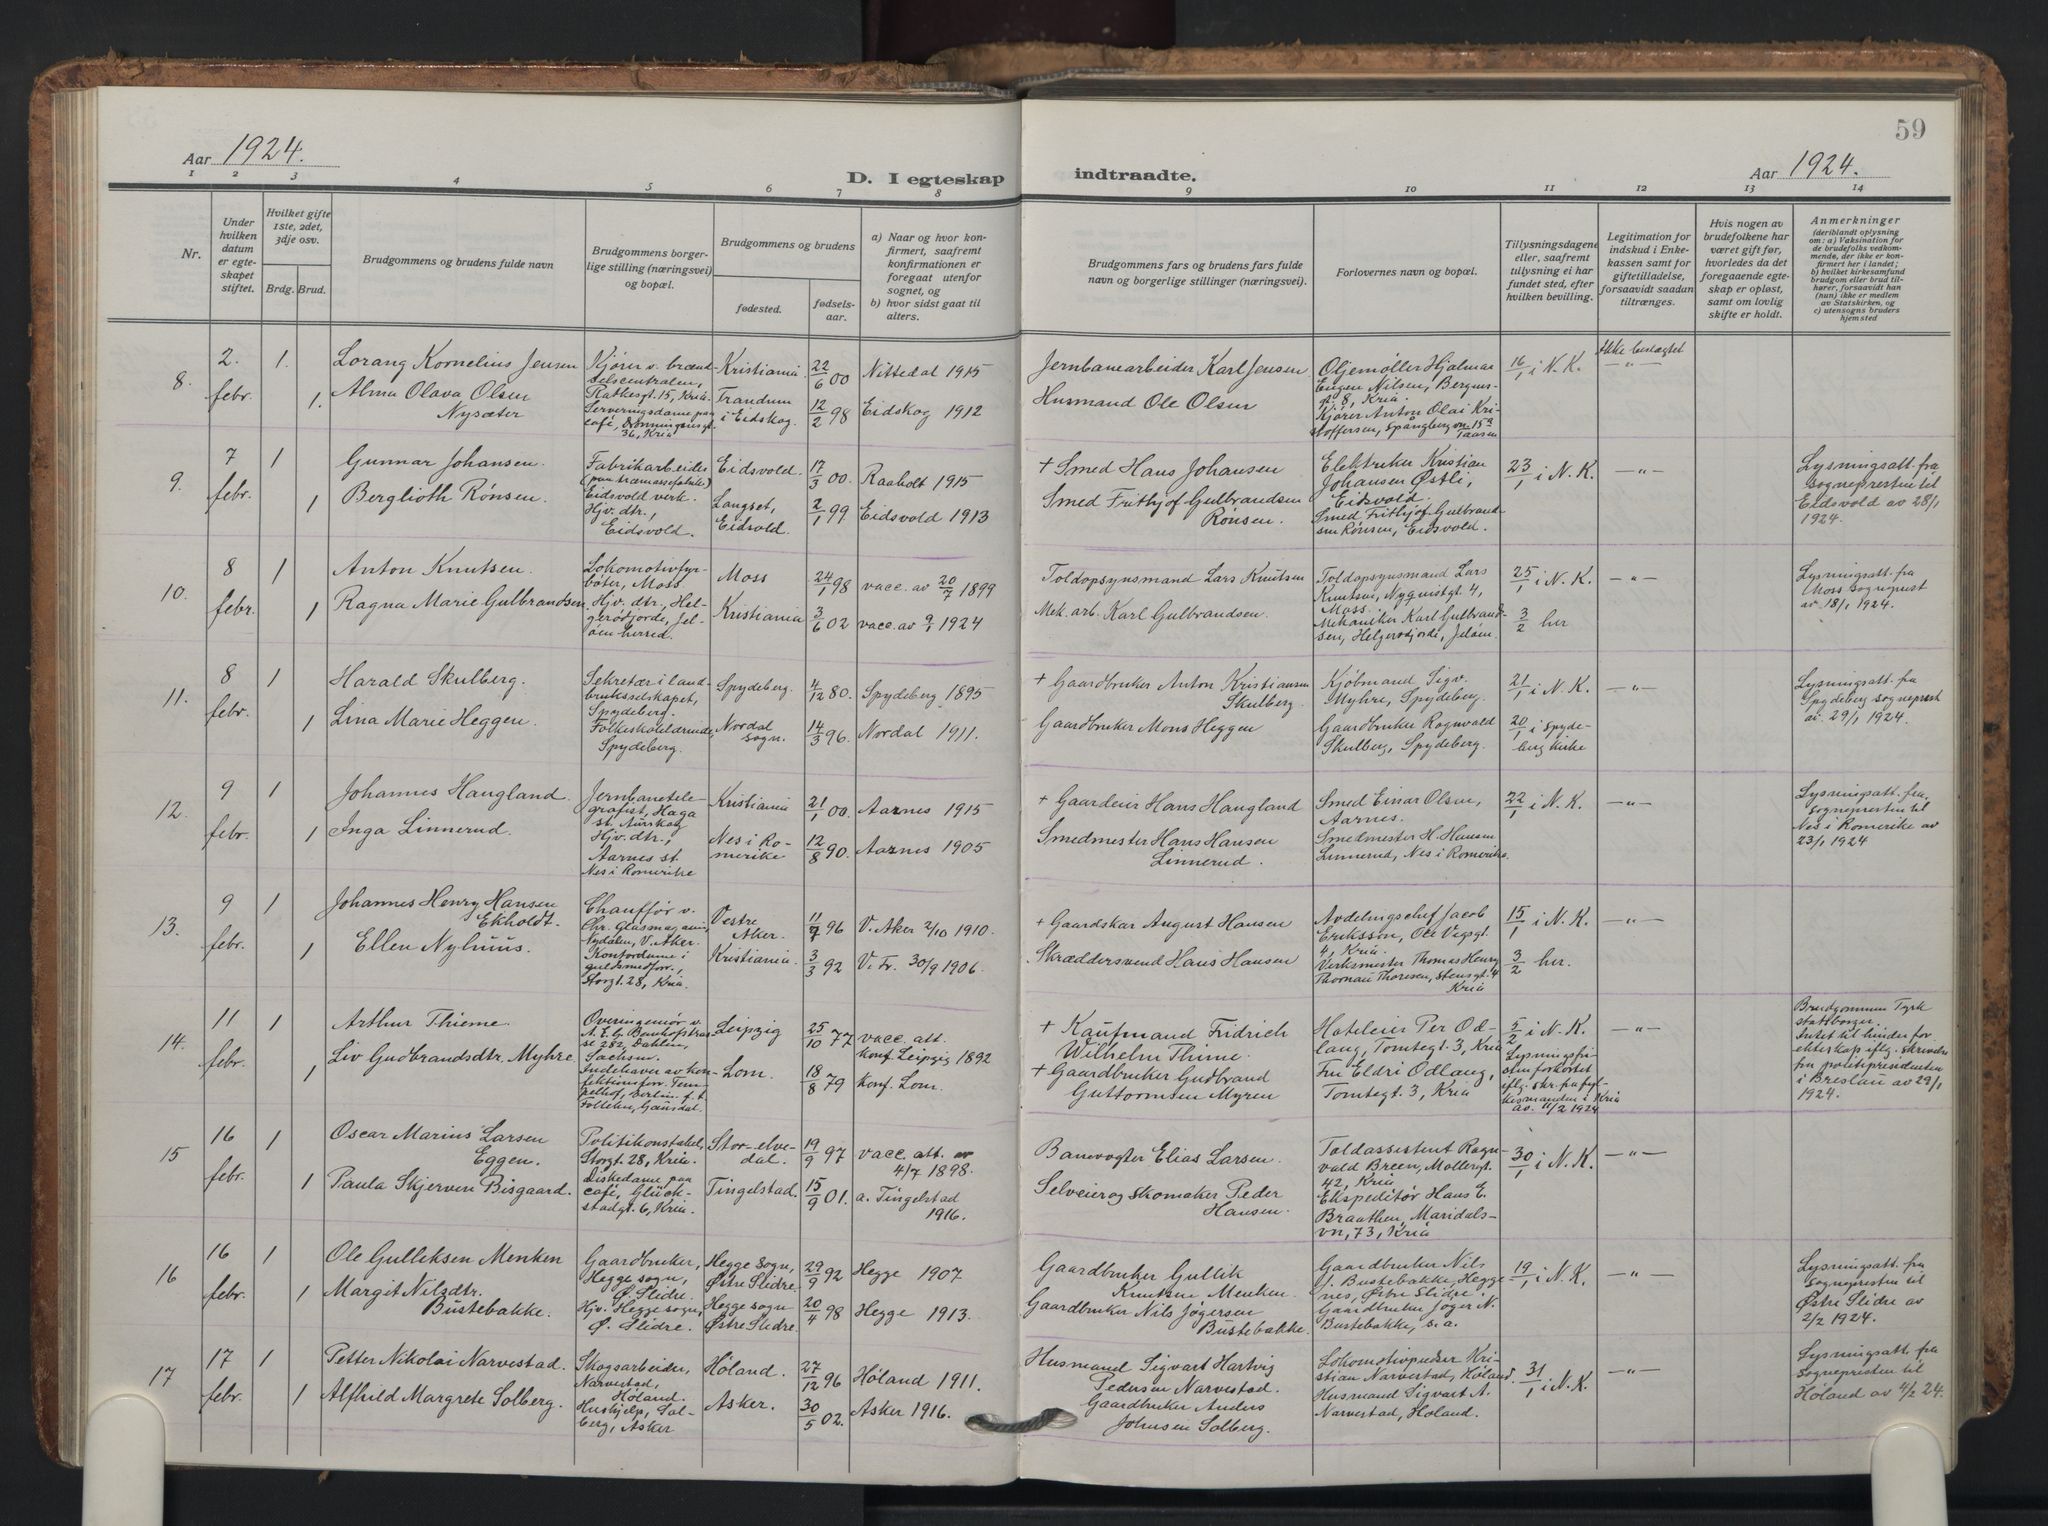 59
Aar 1924.
Aar 1924.
D. I egteskap indtraadte.
1 2 3 4 5 6 7 8 9 10 11 12 13 14
Nr.
Under hvilken datum er egteskapet stiftet.
Hvilket gifte 1ste, 2det, 3dje osv.
Brdg. Brud.
Brudgommens og brudens fulde navn
Brudgommens borgerlige stilling (næringsvei) og bopæl.
Brudgommens og brudens
fødested.
fødselsaar.
a) Naar og hvor konfirmert, saafremt konfirmationen er foregaat utenfor sognet, og
b) hvor sidst gaat til alters.
Brudgommens fars og brudens fars fulde navn og borgerlige stillinger (næringsvei).
Forlovernes navn og bopæl.
Tillysningsdagene eller, saafremt tillysning ei har fundet sted, efter hvilken bevilling.
Legitimation for indskud i Enkekassen samt for giftetilladelse, forsaavidt saadan tiltrænges.
Hvis nogen av brudefolkene har været gift før, hvorledes da det foregaaende egteskap er opløst, samt om lovlig skifte er holdt.
Anmerkninger
(deriblandt oplysning om: a) Vaksination for de brudefolks vedkommende, der ikke er konfirmert her i landet;
b) hvilket kirkesamfund brudgom eller brud tilhører, forsaavidt han (hun) ikke er medlem av Statskirken, og
c) utensogns bruders hjemsted
8.
2. febr.
1.
Lorang Kornelius Jensen
Kjører v. brændselscentralen, Ratkesgt. 15, Kria.
Kristiania
22/6 00
Nittedal 1915
Jernbanearbeider Karl Jensen
Oljemøller Hjalmar Eugen Nilsen, Bergensgt. 8, Kria
16/1 i N. K.
Ikke beslægtet
—"—
1.
Alma Olava Olsen Nysæter
Serveringsdame paa café, Dronningensgt. 36, Kria
Trandum i Eidskog.
12/2 98
Eidskog 1912
Husmand Ole Olsen
Kjører Anton Olai Kristoffersen, Spångbergvn 15
9.
7 febr.
1
Gunnar Johansen.
Fabrikarbeider (paa træmassefabrik) Eidsvold verk.
Eidsvold.
17/3 00.
Raaholt 1915
+ Smed Hans Johansen
Elektriker Kristian Johansen Østli, Eidsvold.
23/1 i N. K.
—"—
Lysningsatt. fra sognepresten til Eidsvold av 28/1 1924.
1
Berglioth Rønsen.
Hjv. dtr., Eidsvold.
Langset, Eidsvold.
2/1 99
Eidsvold 1913
Smed Frithjof Gulbrandsen Rønsen.
Smed Frithjof Gulbrandsen Rønsen, Eidsvold.
10.
8 febr.
1
Anton Knutsen.
Lokomotivfyrbøter, Moss
Moss
24/1 98
vacc. av 20/7 1899
Toldopsynsmand Lars Knutsen
Toldopsynsmand Lars Knutsen, Nyquistgt. 4, Moss.
25/1 i N. K.
—"—
Lysningsatt. fra Moss sogneprest av 18/1 1924.
1
Ragna Marie Gulbrandsen.
Hjv. dtr., Helgerødjorde, Jeløen herred.
Kristiania
3/6 02
vacc. av 9/1 1924
Mek. arb. Karl Gulbrandsen.
Mekaniker Karl Gulbrandsen, Helgerødjorde, Jeløen.
3/2 her
11.
8 febr.
1
Harald Skulberg.
Sekretær i landbruksselskapet, Spydeberg.
Spydeberg.
4/12 80.
Spydeberg 1895
+ Gaardbruker Anton Kristiansen Skulberg.
Kjøbmand Sigv. Myhre, Spydeberg.
21/1 i N. K.
—"—
Lysningsatt. fra Spydeberg sogneprest av. 29/1 1924.
1
Lina Marie Heggen.
Folkeskolelærerinde, Spydeberg.
Nordal sogn.
14/3 96.
Nordal 1911.
Gaardbruker Mons Heggen
Gaardbruker Ragnvald Skulberg, Spydeberg.
20/1 i Spydeberg kirke
12.
9 febr.
1
Johannes Haugland.
Jernbanetelegrafist, Haga st. Aurskog
Kristiania
21/1 00.
Aarnes 1915
+ Gaardeier Hans Haugland
Smed Einar Olsen, Aarnes.
22/1 i N. K.
—"—
Lysningsatt. fra sognepresten til Nes i Romerike av 23/1 1924
1
Inga Linnerud.
Hjv. dtr., Aarnes st. Nes i Romerike
Nes i Romerike
12/8 90.
Aarnes 1905
Smedmester Hans Hansen Linnerud.
Smedmester H. Hansen Linnerud, Nes i Romerike.
13.
9 febr.
1
Johannes Henry Hansen Ekholdt.
Chauffør v. Chr. Glasmagasin, Nydalen, V. Aker.
Vestre Aker.
11/7 96
V. Aker 2/10 1910.
+ Gaardskar August Hansen
Avdelingschef Jacob Eriksson, Ole Vigsgt. 4, Kria.
15/1 i N. K.
—"—
1
Ellen Nylnius.
Kontordame i guldsmedforr., Storgt. 28, Kria.
Kristiania.
3/3 92
V. Fr. 30/9 1906.
Skræddersvend Hans Hansen
Verksmester Thomas Henry Thornau Thoresen, Stensgt. 4 Kria
3/2 her.
14.
11 febr.
1
Arthur Thieme.
Overingeniør v. A. E. G. 282, Dahlen, Sachsen.
Leipzig
25/10 77
vacc. att. konf. Leipzig 1892
+ Kaufmand Fridrich Wilhelm Thime.
Hoteleier Per Odlaug, Tomtegt. 3, Kria
5/2 i N. K.
Lysningsfristen forkortet iflg. skr. fra fylkesmanden i Kria av. 11/2 1924
—"—
Brudgommen Tysk statsborger. Intet til hinder for ekteskap iflg. skrivelse fra politipresidenten i Breslau av 29/1 1924.
1
Liv Gudbrandsdtr. Myhre
Indehaver av konfektionsforr. Tempelhof, Berlin. f. t. Follebu, Gausdal.
Lom.
18/8 79
Konf. Lom.
+ Gaardbruker Gudbrand Guttormsen Myren
Fru Eldri Odlaug, Tomtegt. 3, Kria
15
16 febr.
1
Oscar Marius Larsen Eggen.
Politikonstabel, Storgt. 28, Kria.
Stor-elvedal.
19/9 97
vacc. att. av 4/7 1898.
Banevogter Elias Larsen.
Toldassistent Ragnvald Breen, Møllergt. 42, Kria
30/1 i N. K.
—"—
1
Paula Skjerven Bisgaard.
Diskedame paa café, Glückstadgt. 6, Kria.
Tingelstad.
15/9 01.
a. Tingelstad 1916.
Selveier og skomaker Peder Hansen.
Ekspeditør Hans E. Braathen, Maridalsvn, 73, Kria
16
16 febr.
1
Ole Gulliksen Menken
Gaardbruker, Hegge sogn, Ø. Slidre.
Hegge sogn, Østre Slidre.
29/9 92
Hegge 1907
Gaardbruker Gullik Knutsen Menken.
Gaardbruker Nils J. Bustebakke, Heggenes, Østre Slidre
19/1 i N. K.
—"—
Lysningsatt. fra sognepresten til Østre Slidre av 2/2 1924.
1
Margit Nilsdtr. Bustebakke.
Hjv. Hegge sogn, Ø. Slidre.
Hegge sogn Østre Slidre.
20/4 98
Hegge 1913.
Gaardbruker Nils Jøgersen Bustebakke.
Gaardbruker Jøger N. Bustebakke, s. a.
17
17 febr.
1
Petter Nikolai Narvestad.
Skogsarbeider, Narvestad, Høland.
Høland.
27/12 96
Høland 1911.
Husmand Sigvart Hartvig Pedersen Narvestad.
Lokomotivpudser Kristian Narvestad, Høland.
31/1 i N. K.
—"—
Lysningsatt. fra sognepresten til Høland av 4/2 24.
1
Alfhild Margrete Solberg.
Hushjelp, Solberg, Asker
Asker.
30/5 02.
Asker 1916.
Gaardbruker Anders Johnsen Solberg.
Husmand Sigvart A. Narvestad, Høland.